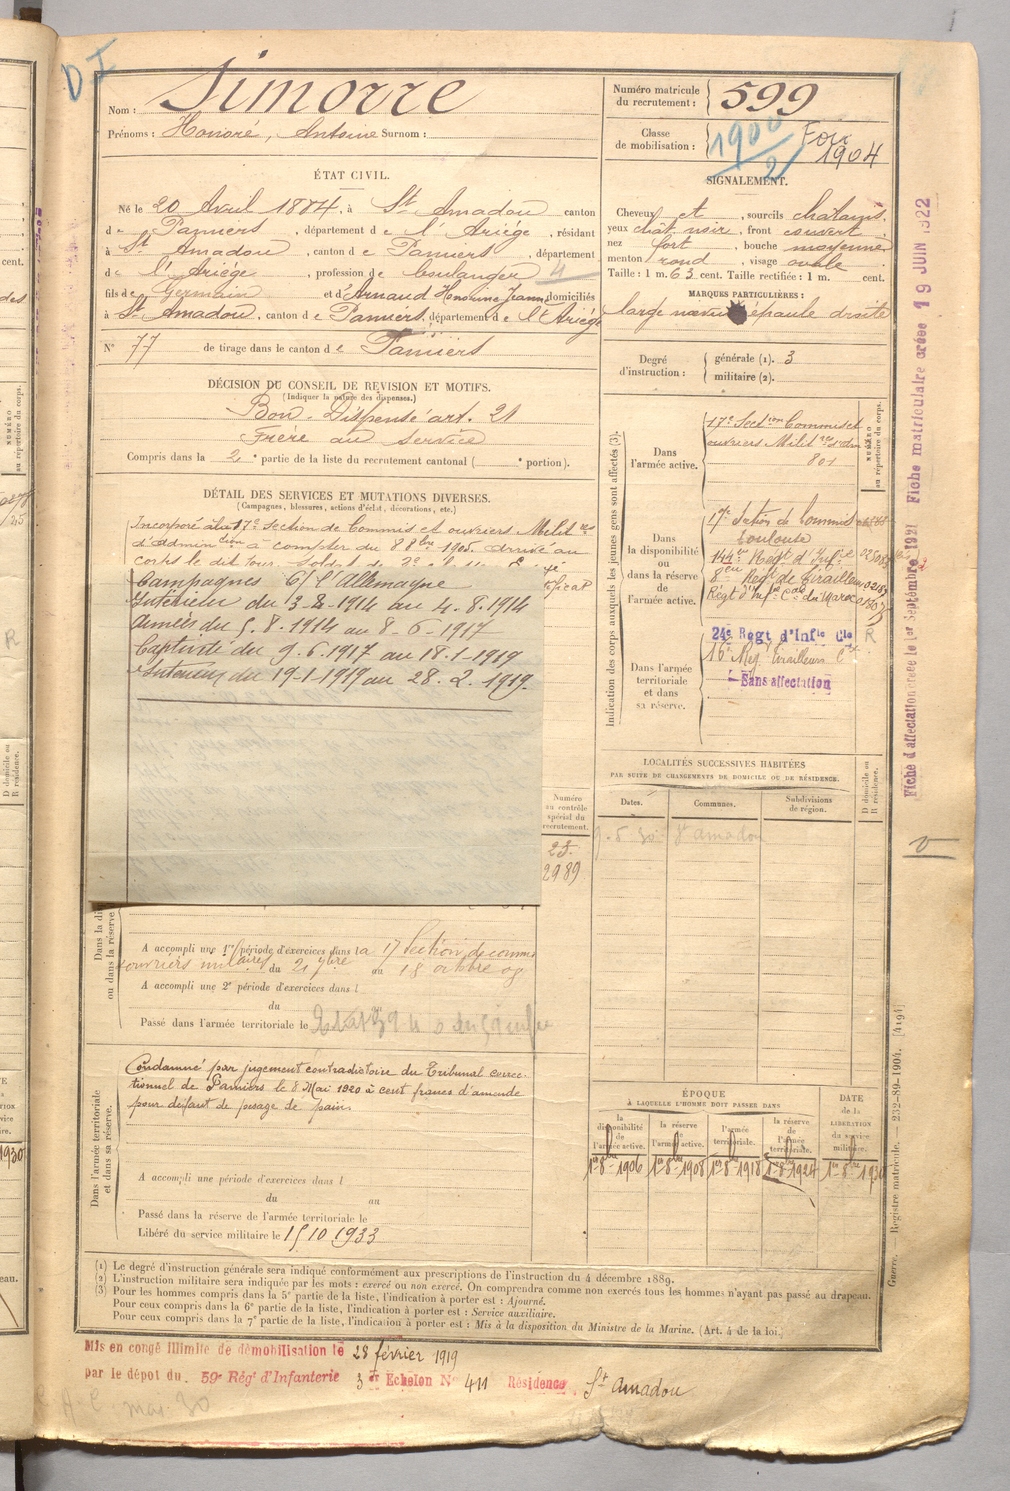 D I
Nom : Simorre
Prénoms : Honoré, Antoine Surnom :
Numéro matricule du recrutement : 599
Classe de mobilisation : 1900/2 Foix 1904
ÉTAT CIVIL.
Né le 20 Avril 1884, à St Amadou canton
de Pamiers, département de l'Ariège, résidant
à St Amadou, canton de Pamiers, département
de l'Ariège, profession de boulanger 4
fils de Germain et d'Arnaud Honorine Jeanne domiciliés
à St Amadou, canton de Pamiers, département de l'Ariège
N° 77 de tirage dans le canton de Pamiers
SIGNALEMENT.
Cheveux et, sourcils châtains.
yeux chât. noir, front couvert
nez fort, bouche moyenne
menton rond, visage ovale
Taille : 1 m. 63 cent. Taille rectifiée : 1 m. cent.
MARQUES PARTICULIÈRES :
large nævus épaule droite
Degré d'instruction : générale (1). 3
militaire (2).
DÉCISION DU CONSEIL DE REVISION ET MOTIFS.
(Indiquer la nature des dispenses.)
Bon - Dispensé art. 21
Frère au service
Compris dans la 2e partie de la liste du recrutement cantonal ( e portion).
DÉTAIL DES SERVICES ET MUTATIONS DIVERSES.
(Campagnes, blessures, actions d'éclat, décorations, etc.)
Incorporé à la 17e Section de Commis et ouvriers Milit res
d'admin tion à compter du 8 8bre 1905. arrivé au
corps le dit jour. Soldat de 2e
Campagnes C/ l'Allemagne
Intérieur du 3-8-1914 au 4.8.1914
Armées du 5.8.1914 au 8-6-1917
Captivité du 9.6.1917 au 18-1-1919
Intérieur du 19-1-1919 au 28.2.1919.
Numéro au contrôle spécial du recrutement.
2989
Indication des corps auxquels les jeunes gens sont affectés (3).
NUMÉRO au répertoire du corps.
Dans l'armée active.
17e Section Commis et
ouvriers Milit res d'adm
801
Dans la disponibilité ou dans la réserve de l'armée active.
17e Section de Commis
Toulouse
144e Régt d'Inf ie
8e Régt de Tirailleurs
Régt d'Inf ie Cale du Maroc
Dans l'armée territoriale et dans sa réserve.
24e Régt d'Infie Cle R
16e Rég Tirailleurs
Sans affectation
LOCALITÉS SUCCESSIVES HABITÉES
PAR SUITE DE CHANGEMENTS DE DOMICILE OU DE RÉSIDENCE.
Dates. Communes. Subdivisions de région. D domicile ou R résidence.
St amadou
Dans la di
ou dans la réserve
A accompli une 1re période d'exercices dans la 17 Section de commis
ouvriers militaires du 21 7bre au 18 octbre 09
A accompli une 2e période d'exercices dans l
du
Passé dans l'armée territoriale le
Dans l'armée territoriale et dans sa réserve.
Condamné par jugement contradictoire du Tribunal correc-
tionnel de Pamiers le 8 Mai 1920 à cent francs d'amende
pour défaut de pesage de pain.
A accompli une période d'exercices dans l
du au
Passé dans la réserve de l'armée territoriale le
Libéré du service militaire le 15 10 1933
ÉPOQUE
À LAQUELLE L'HOMME DOIT PASSER DANS
la disponibilité de l'armée active. la réserve de l'armée active. l'armée territoriale. la réserve de l'armée territoriale. DATE de la LIBÉRATION du service militaire.
1er 8bre 1906 1er 8bre 1908 1er 8bre 1918 1er 8bre 1924 1er 8bre 1930
(1) Le degré d'instruction générale sera indiqué conformément aux prescriptions de l'instruction du 4 décembre 1889.
(2) L'instruction militaire sera indiquée par les mots : exercé ou non exercé. On comprendra comme non exercés tous les hommes n'ayant pas passé au drapeau.
(3) Pour les hommes compris dans la 5e partie de la liste, l'indication à porter est : Ajourné.
Pour ceux compris dans la 6e partie de la liste, l'indication à porter est : Service auxiliaire.
Pour ceux compris dans la 7e partie de la liste, l'indication à porter est : Mis à la disposition du Ministre de la Marine. (Art. 4 de la loi.)
Mis en congé illimité de démobilisation le 28 février 1919
par le dépôt du 59e Rég d'Infanterie 3e Echelon N° 411 Résidence St Amadou
Fiche d'affectation créée le 1er Septembre 1921 Fiche matriculaire créée 19 JUIN 1922
Guerre. Registre matricule. — 232-89-1904. [4194]